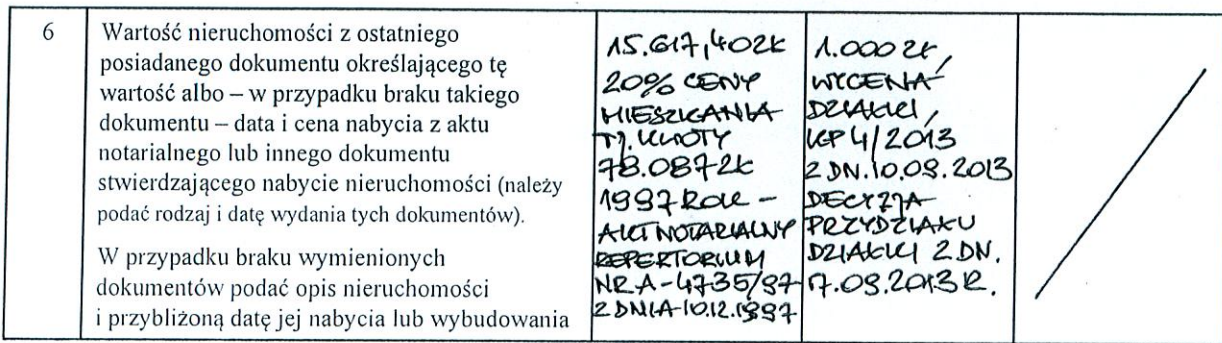 6
Wartość nieruchomości z ostatniego
posiadanego dokumentu określającego tę
wartość albo – w przypadku braku takiego
dokumentu – data i cena nabycia z aktu
notarialnego lub innego dokumentu
stwierdzającego nabycie nieruchomości (należy
podać rodzaj i datę wydania tych dokumentów).
W przypadku braku wymienionych
dokumentów podać opis nieruchomości
i przybliżoną datę jej nabycia lub wybudowania
15.617,40ZŁ
20% CENY
MIESZKANIA
TJ. KWOTY
78.087ZŁ
1997 ROK –
AKT NOTARIALNY
REPERTORIUM
NR A-4735/97
Z DNIA 10.12.1997
1.000 ZŁ,
WYCENA
DZIAŁKI,
KP 4/2013
Z DN. 10.09.2013
DECYZJA
PRZYDZIAŁU
DZIAŁKI Z DN.
17.09.2013 R.